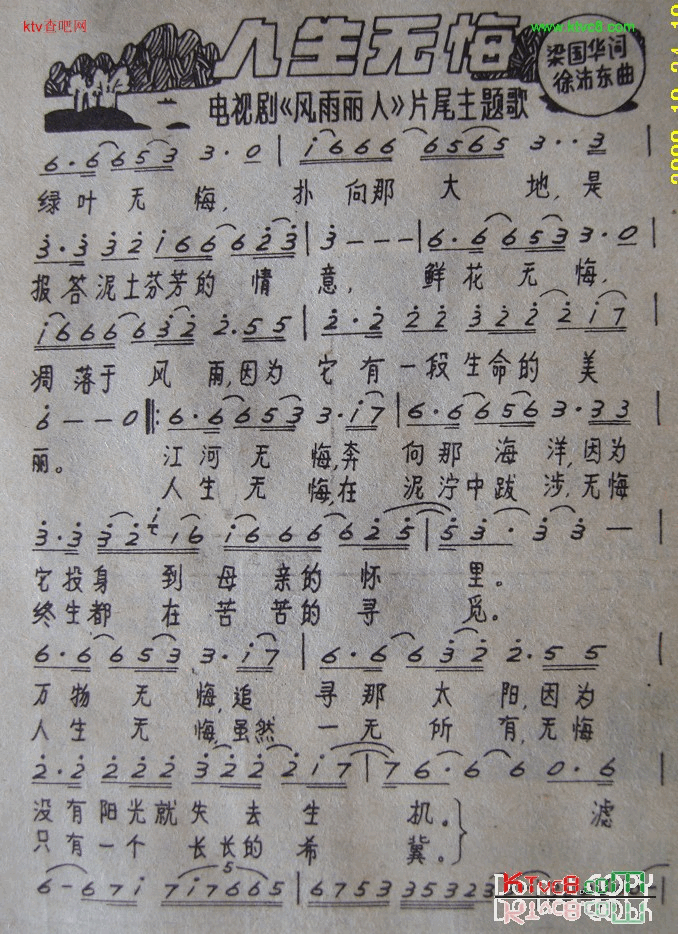 ktv查吧网
www.ktvc8.com
人生无悔
梁国华词
徐沛东曲
电视剧《风雨丽人》片尾主题歌
6·6 6 5 3 3·0 | i 6 6 6 6 5 6 5 3··3 |
绿叶无悔,扑向那大地,是
3·3 3 2 i 6 6 6 2 3 | 3 - - - | 6·6 6 5 3 3·0 |
报答泥土芬芳的情意,鲜花无悔,
i 6 6 6 6 3 2 2·5 5 | 2·2 2 2 3 2 2 2 i 7 |
凋落于风雨,因为它有一段生命的美
6 - - 0 ‖: 6·6 6 5 3 3·i 7 | 6·6 6 5 6 3·3 3
丽。江河无悔,奔向那海洋,因为
人生无悔,在泥泞中跋涉,无悔
3·3 3 2 i 6 i 6 6 6 6 2 5 | 5 3· 3 3 - |
它投身到母亲的怀里。
终生都在苦苦的寻觅。
6·6 6 5 3 3·i 7 | 6·6 6 3 2 2·5 5 |
万物无悔,追寻那太阳,因为
人生无悔,虽然一无所有,无悔
2·2 2 2 2 3 2 2 2 i 7 | 7 6· 6 6 0·6 |
没有阳光就失去生机。滤
只有一个长长的希冀。
6 - 6 7 i 7 i 7 6 6 5 | 6 7 5 3 3 5 3 2 3
KTvc8.com